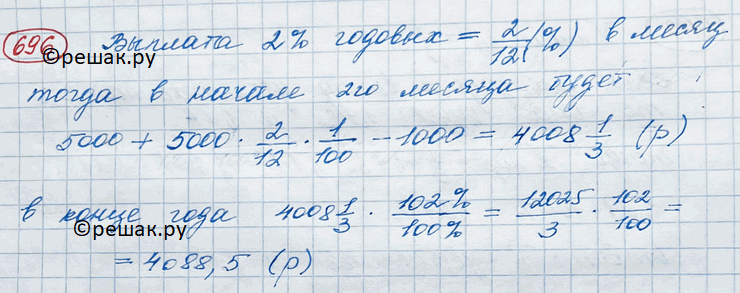 696 Выплата 2% годовых = 2/12 (%) в месяц
©решак.ру
тогда в начале 2го месяца будет
5000 + 5000 · 2/12 · 1/100 - 1000 = 4008 1/3 (р)
в конце года 4008 1/3 · 102%/100% = 12025/3 · 102/100 =
©решак.ру
= 4088,5 (р)
©решак.ру